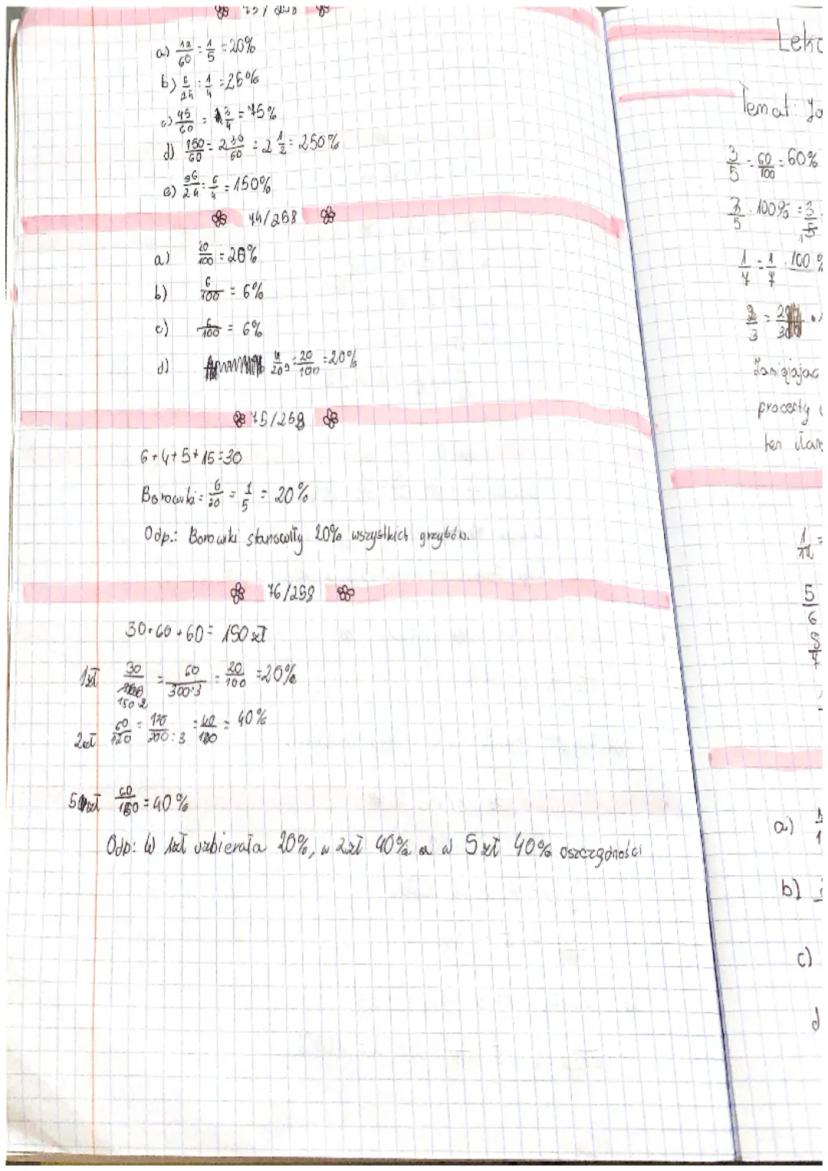 a) 12/60 = 1/5 = 20%
b) 6/24 = 1/4 = 25%
c) 45/60 = 3/4 = 75%
d) 150/60 = 2 30/60 = 2 1/2 = 250%
e) 36/24 = 6/4 = 150%
74/268
a) 20/100 = 20%
b) 6/100 = 6%
c) 6/100 = 6%
d) 20/100 = 20%
75/268
6+4+5+15=30
Borowiki = 1/5 = 20%
Odp.: Borowiki stanowiły 20% wszystkich grzybów.
76/258
30+60+60= 150 zł
1zł 30/150·2 = 60/300:3 = 20/100 = 20%
2zł = 40/100 = 40%
5 zł = 40%
Odp: W 1zł uzbierała 20%, w 2zł 40% a w 5 zł 40% oszczędności
Lekc
Temat: Ja
3/5 = 60/100 = 60%
3/5 · 100% = 3/5
1/7 = 1/7 · 100%
procenty
ten
5/6
a)
b)
c)
d